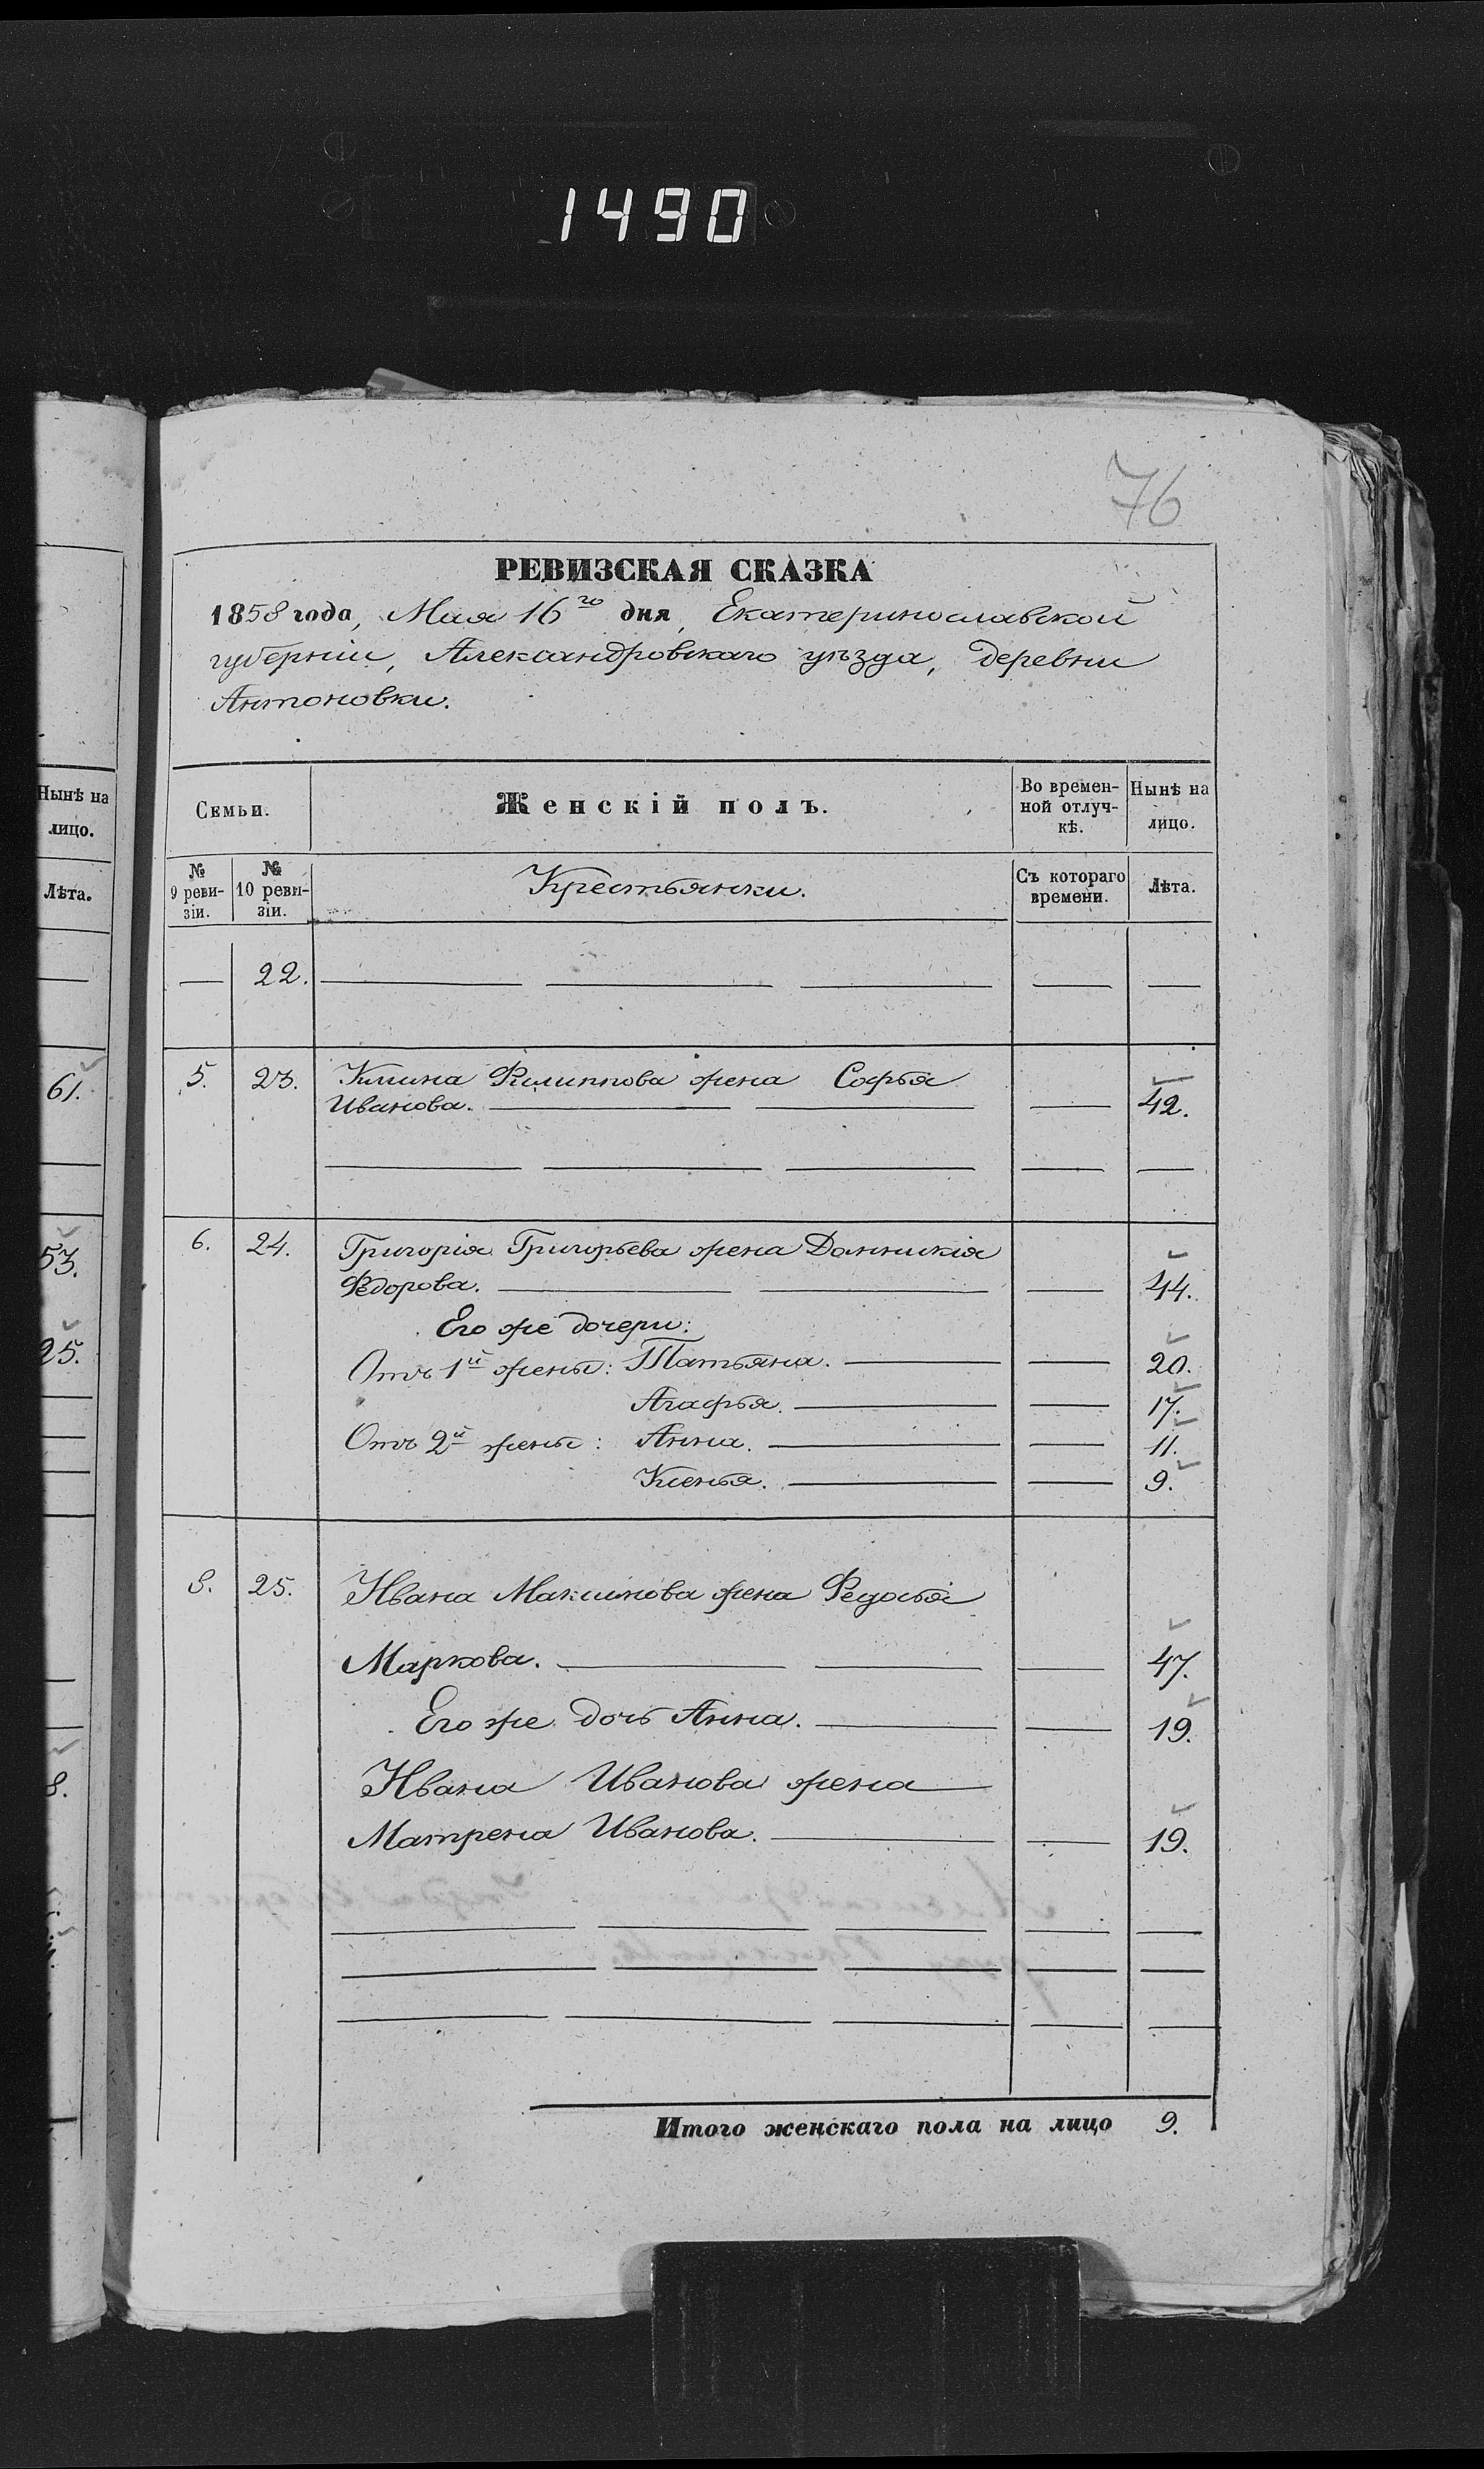 1490
76
РЕВИЗСКАЯ СКАЗКА
1858 года, Мая 16го дня, Екатеринославской
губерніи, Александровскаго уѣзда, деревни
Антоновки.
Нынѣ на лицо.
Лѣта.
61.
53.
25.
8.
Семьи.
Женскій полъ.
Во времен-
ной отлуч-
кѣ.
Нынѣ на
лицо.
№ 9 реви-
зіи.
№ 10 реви-
зіи.
Крестьянки.
Съ котораго
времени.
Лѣта.
— 22. — — — — —
5. 23. Филиппова жена Софья
Иванова. — — — 42.
— — — — —
6. 24. Григорія Григорьева жена
Федорова. — — — 44.
Его же дочери:
Отъ 1й жены: Татьяна. — — 20.
Агафья. — — 17.
Отъ 2й жены: Анна. — — 11.
Ксенья. — — 9.
8. 25. Ивана Максимова жена Федосья
Маркова. — — — 47.
Его же дочь Анна. — — 19.
Ивана Иванова жена —
Матрена Иванова. — — 19.
— — — — —
— — — — —
— — — — —
Итого женскаго пола на лицо 9.